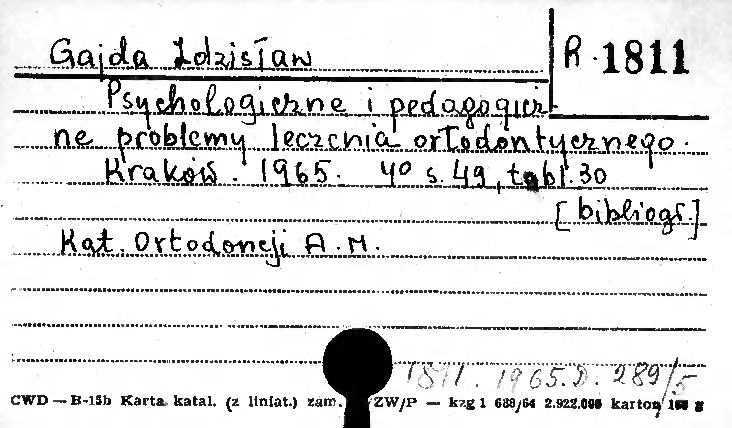 Gajda Zdzisław
R. 1811
Psychologiczne i pedagogicz-
ne problemy leczenia ortodontycznego.
Kraków. 1965. 4º s. 49, tabl. 30
[bibliogr.]
Kat. Ortodoncji A.M.
1811. 1965.D. 289/5
CWD — B-15b Karta katal. (z liniat.) zam. ZW/P — kzg 1 688/64 2.922.000 karton g